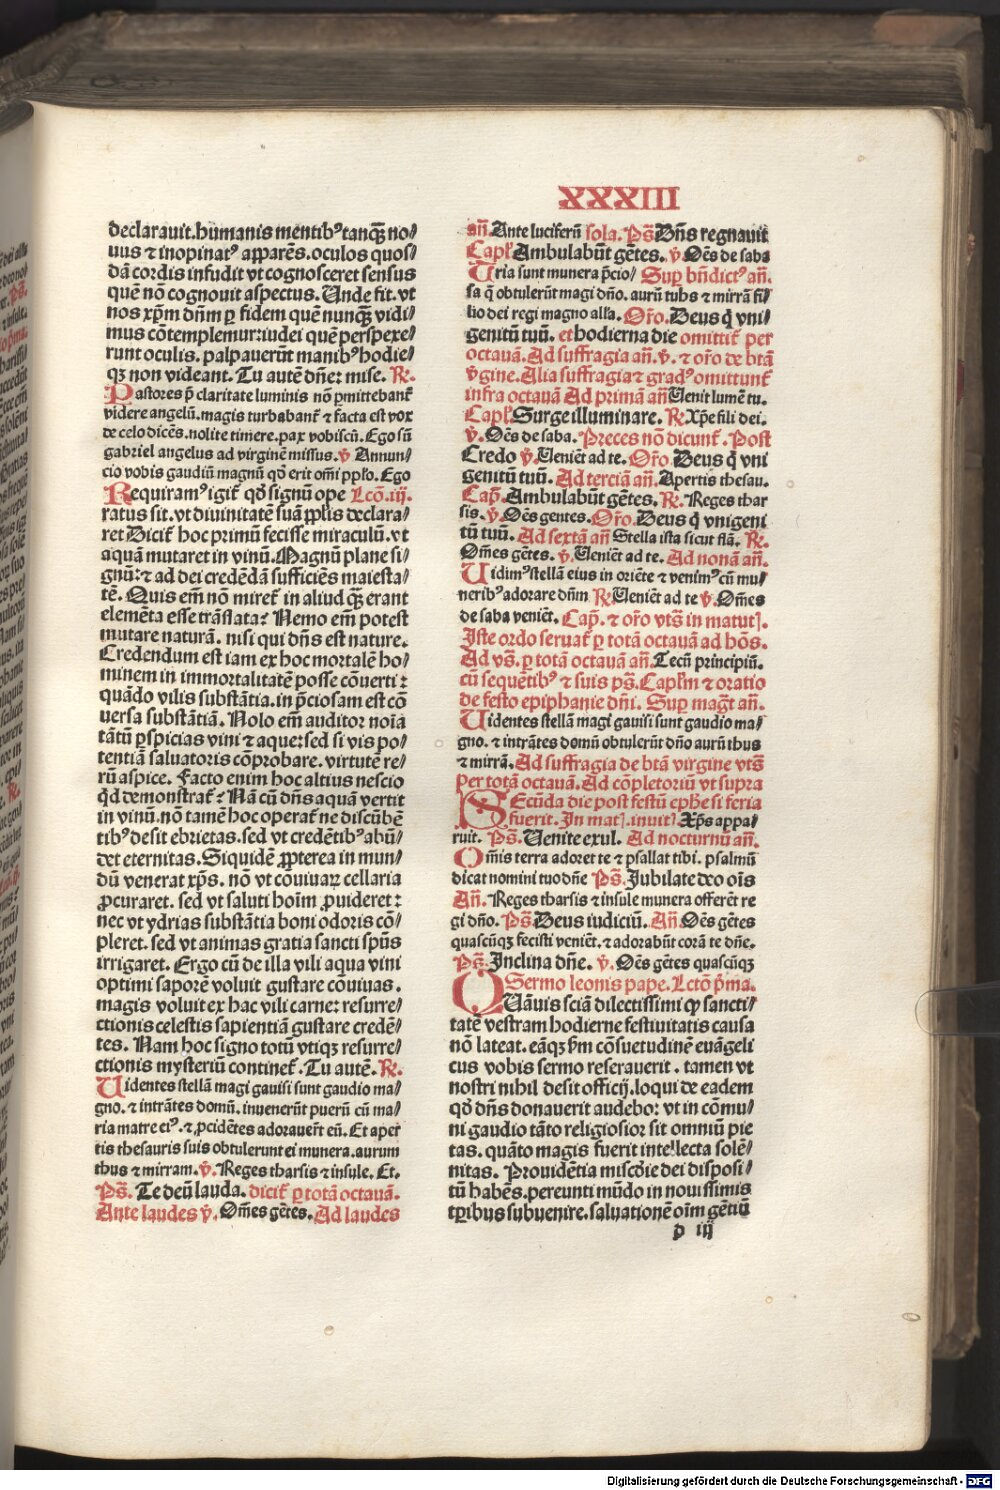 XXXIII
declarauit.humanis mentibꝰ tanq̄ꝫ no⸗
uus ⁊ inopinatꝰ apparēs.oculos quos⸗
dā cordis infudit vt cognosceret sensus
quē nō cognouit aspectus. Unde fit.vt
nos xp̄m dn̄m ꝑ fidem quē nunq̄ꝫ vidi⸗
mus cōtemplemur:iudei quē perspexe⸗
runt oculis. palpauerūt manibꝰ hodie⸗
qꝫ non videant. Tu autē dn̄e: mise. R̸.
Pastores p̄ claritate luminis nō ꝑmittebant᷑
videre angelū.magis turbabant᷑ ⁊ facta est vox
de celo dicēs.nolite timere.pax vobiscū. Ego sū
gabriel angelus ad virginē missus. v̸ Annun⸗
cio vobis gaudiū magnū qd̄ erit om̄i pp̄lo. Ego
Requiramꝰ igit᷑ qd̄ signū ope Lcō.iij.
ratus sit.vt diuinitatē suā pp̄lis declara⸗
ret Dicit᷑ hoc primū fecisse miraculū.vt
aquā mutaret in vinū. Magnū plane si⸗
gnū:⁊ ad dei credēdā sufficiēs maiesta⸗
tē. Quis em̄ nō miret᷑ in aliud q̄ꝫ erant
elemēta esse trāslata? Nemo em̄ potest
mutare naturā. nisi qui dn̄s est nature.
Credendum est iam ex hoc mortalē ho⸗
minem in immortalitatē posse cōuerti:
quādo vilis substātia.in p̄ciosam est cō
uersa substātiā. Nolo em̄ auditor noīa
tātū ꝑspicias vini ⁊ aque:sed si vis po⸗
tentiā saluatoris cōprobare. virtutē re⸗
rū aspice. Facto enim hoc altius nescio
qd̄ demonstrat᷑: Nā cū dn̄s aquā vertit
in vinū.nō tamē hoc operat᷑ ne discūbē
tibꝰ desit ebrietas.sed vt credētibꝰ abū⸗
det eternitas. Siquidē ꝓpterea in mun⸗
dū venerat xp̄s. nō vt cōuiuaꝝ cellaria
ꝓcuraret. sed vt saluti hoīm ꝓuideret:
nec vt ydrias substātia boni odoris cō⸗
pleret. sed vt animas gratia sancti spūs
irrigaret. Ergo cū de illa vili aqua vini
optimi saporē voluit gustare cōuiuas.
magis voluit ex hac vili carne: resurre⸗
ctionis celestis sapientiā gustare credē⸗
tes. Nam hoc signo totū vtiqꝫ resurre⸗
ctionis mysteriū continet᷑. Tu autē. R̸.
Uidentes stellā magi gauisi sunt gaudio ma⸗
gno.⁊ intrātes domū. inuenerūt puerū cū ma⸗
ria matre eiꝰ.⁊ ꝓcidētes adorauer̄t eū. Et aper
tis thesauris suis obtulerunt ei munera.aurum
thus ⁊ mirram. v̸. Reges tharsis ⁊ insule. Et.
Ps̄. Te deū lauda. dicit᷑ ꝑ totā octauā.
Ante laudes v̸. Om̄es gētes. Ad laudes
an̄. Ante luciferū sola. Ps̄ Dn̄s regnauit
Capl᷑. Ambulabūt gētes. v̸ Oēs de saba
Uria sunt munera p̄cio⸗ Suꝑ bn̄dictꝰ an̄.
sa q̄ obtulerūt magi dn̄o. aurū tuhs ⁊ mirrā fi⸗
lio dei regi magno alla. Or̄o. Deus q̄ vni⸗
genitū tuū. et hodierna die omittit᷑ per
octauā. Ad suffragia an̄. v̸. ⁊ or̄o de btā
v̄gine. Alia suffragia ⁊ gradꝰ omittunt᷑
infra octauā Ad primā an̄ Uenit lumē tu.
Capl᷑. Surge illuminare. R̸. Xp̄e fili dei.
v̸. Oēs de saba. Preces nō dicunt᷑. Post
Credo v̸. Ueniēt ad te. Or̄o. Deus q̄ vni
genitū tuū. Ad terciā an̄. Apertis thesau.
Cap̄. Ambulabūt gētes. R̸. Reges thar
sis. v̸. Oēs gentes. Or̄o. Deus q̄ vnigeni
tū tuū. Ad sextā an̄ Stella ista sicut flā. R̸.
Om̄es gētes. v̸. Ueniēt ad te. Ad nonā an̄.
Uidimꝰ stellā eius in oriēte ⁊ venimꝰ cū mu⸗
neribꝰ adorare dn̄m R̸. Ueniēt ad te v̸. Om̄es
de saba veniēt. Cap̄. ⁊ or̄o vts̄ in matutꝭ.
Iste ordo seruat᷑ ꝑ totā octauā ad hōs.
Ad vs̄. ꝑ totā octauā an̄. Tecū principiū.
cū sequētibꝰ ⁊ suis ps̄. Capl᷑m ⁊ oratio
de festo epiphanie dn̄i. Suꝑ mag̅t an̄.
Uidentes stellā magi gauisi sunt gaudio ma⸗
gno. ⁊ intrātes domū obtulerūt dn̄o aurū thus
⁊ mirrā. Ad suffragia de btā virgine vts̄
per totā octauā. Ad cōpletoriū vt supra
Secūda die post festū eph̄e si feria
fuerit. In matꝭ. inuitꝭ Xp̄s appa⸗
ruit. Ps̄. Uenite exul. Ad nocturnū an̄.
Om̄is terra adoret te ⁊ psallat tibi. psalmū
dicat nomini tuo dn̄e Ps̄. Jubilate deo oīs
An̄. Reges tharsis ⁊ insule munera offerēt re
gi dn̄o. Ps̄. Deus iudiciū. An̄. Oēs gētes
quascūqꝫ fecisti veniēt.⁊ adorabūt corā te dn̄e.
Ps̄. Inclina dn̄e. v̸. Oēs gētes quascūqꝫ
Sermo leonis pape. Lctō p̄ma.
QUāuis sciā dilectissimi qꝫ sancti⸗
tatē vestram hodierne festiuitatis causa
nō lateat. eāqꝫ ẜm cōsuetudinē euāgeli
cus vobis sermo reserauerit. tamen vt
nostri nihil desit officij. loqui de eadem
qd̄ dn̄s donauerit audebo: vt in cōmu⸗
ni gaudio tāto religiosior sit omniū pie
tas. quāto magis fuerit intellecta solē⸗
nitas. Prouidētia miscd̄ie dei disposi⸗
tū habēs.pereunti mūdo in nouissimis
tꝑibus subuenire.saluationē oīm gētiū
d iij
Digitalisierung gefördert durch die Deutsche Forschungsgemeinschaft - DFG